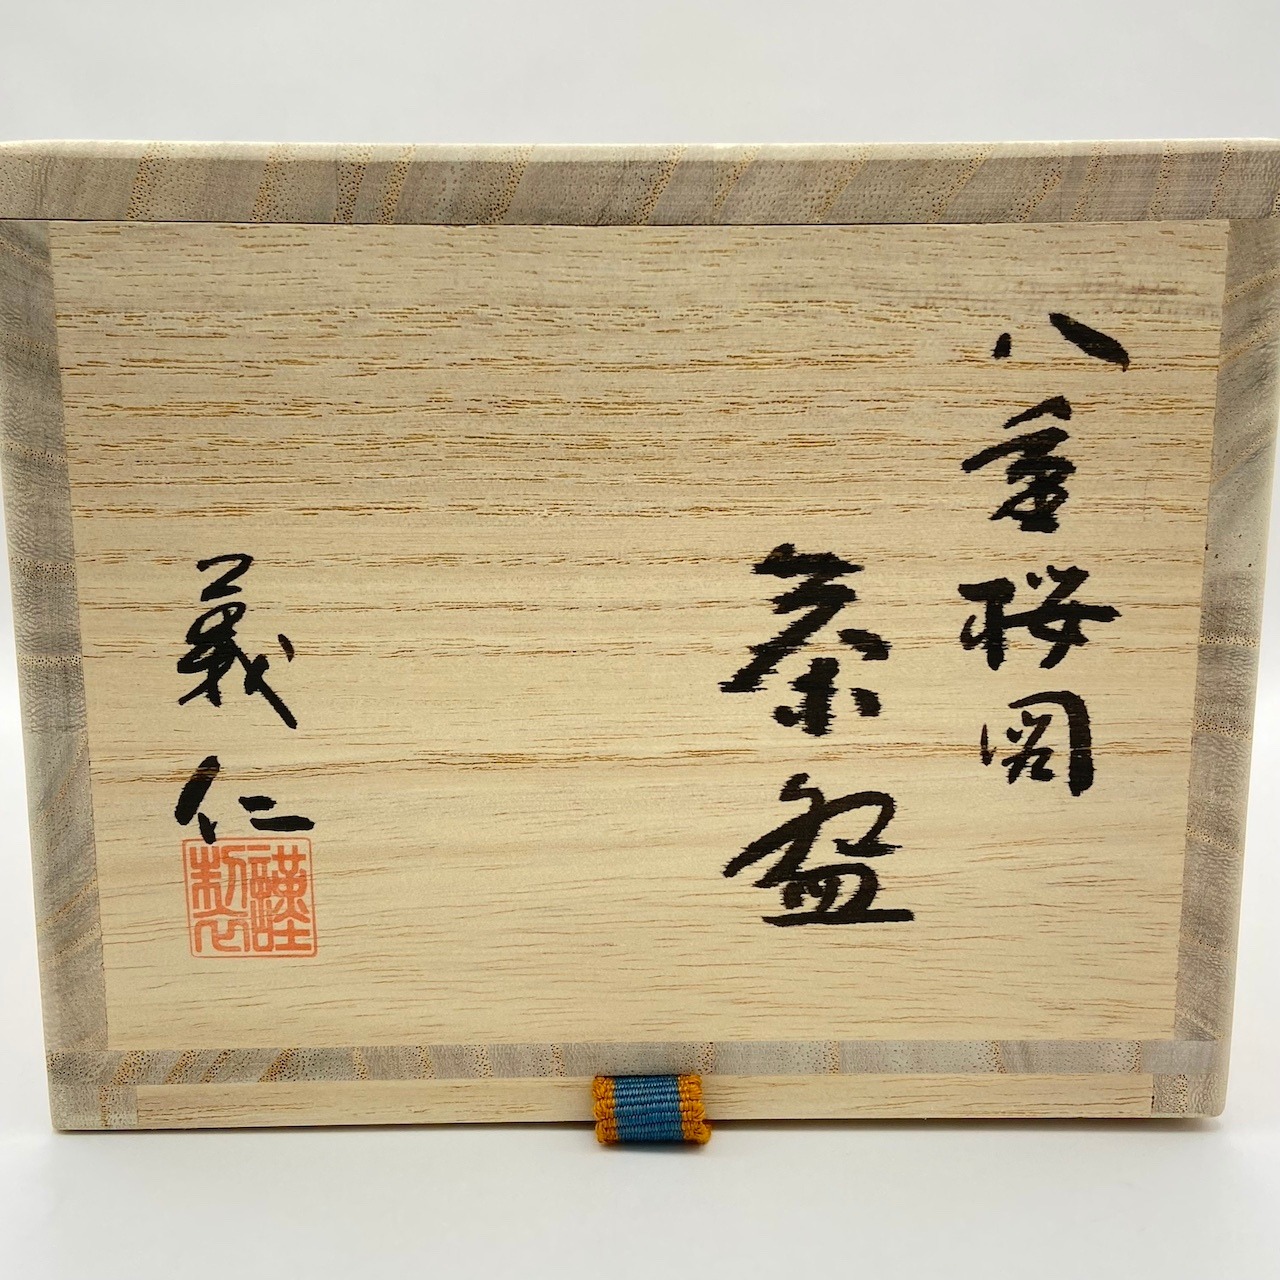 八重桜図
茶盌
義仁
謹製